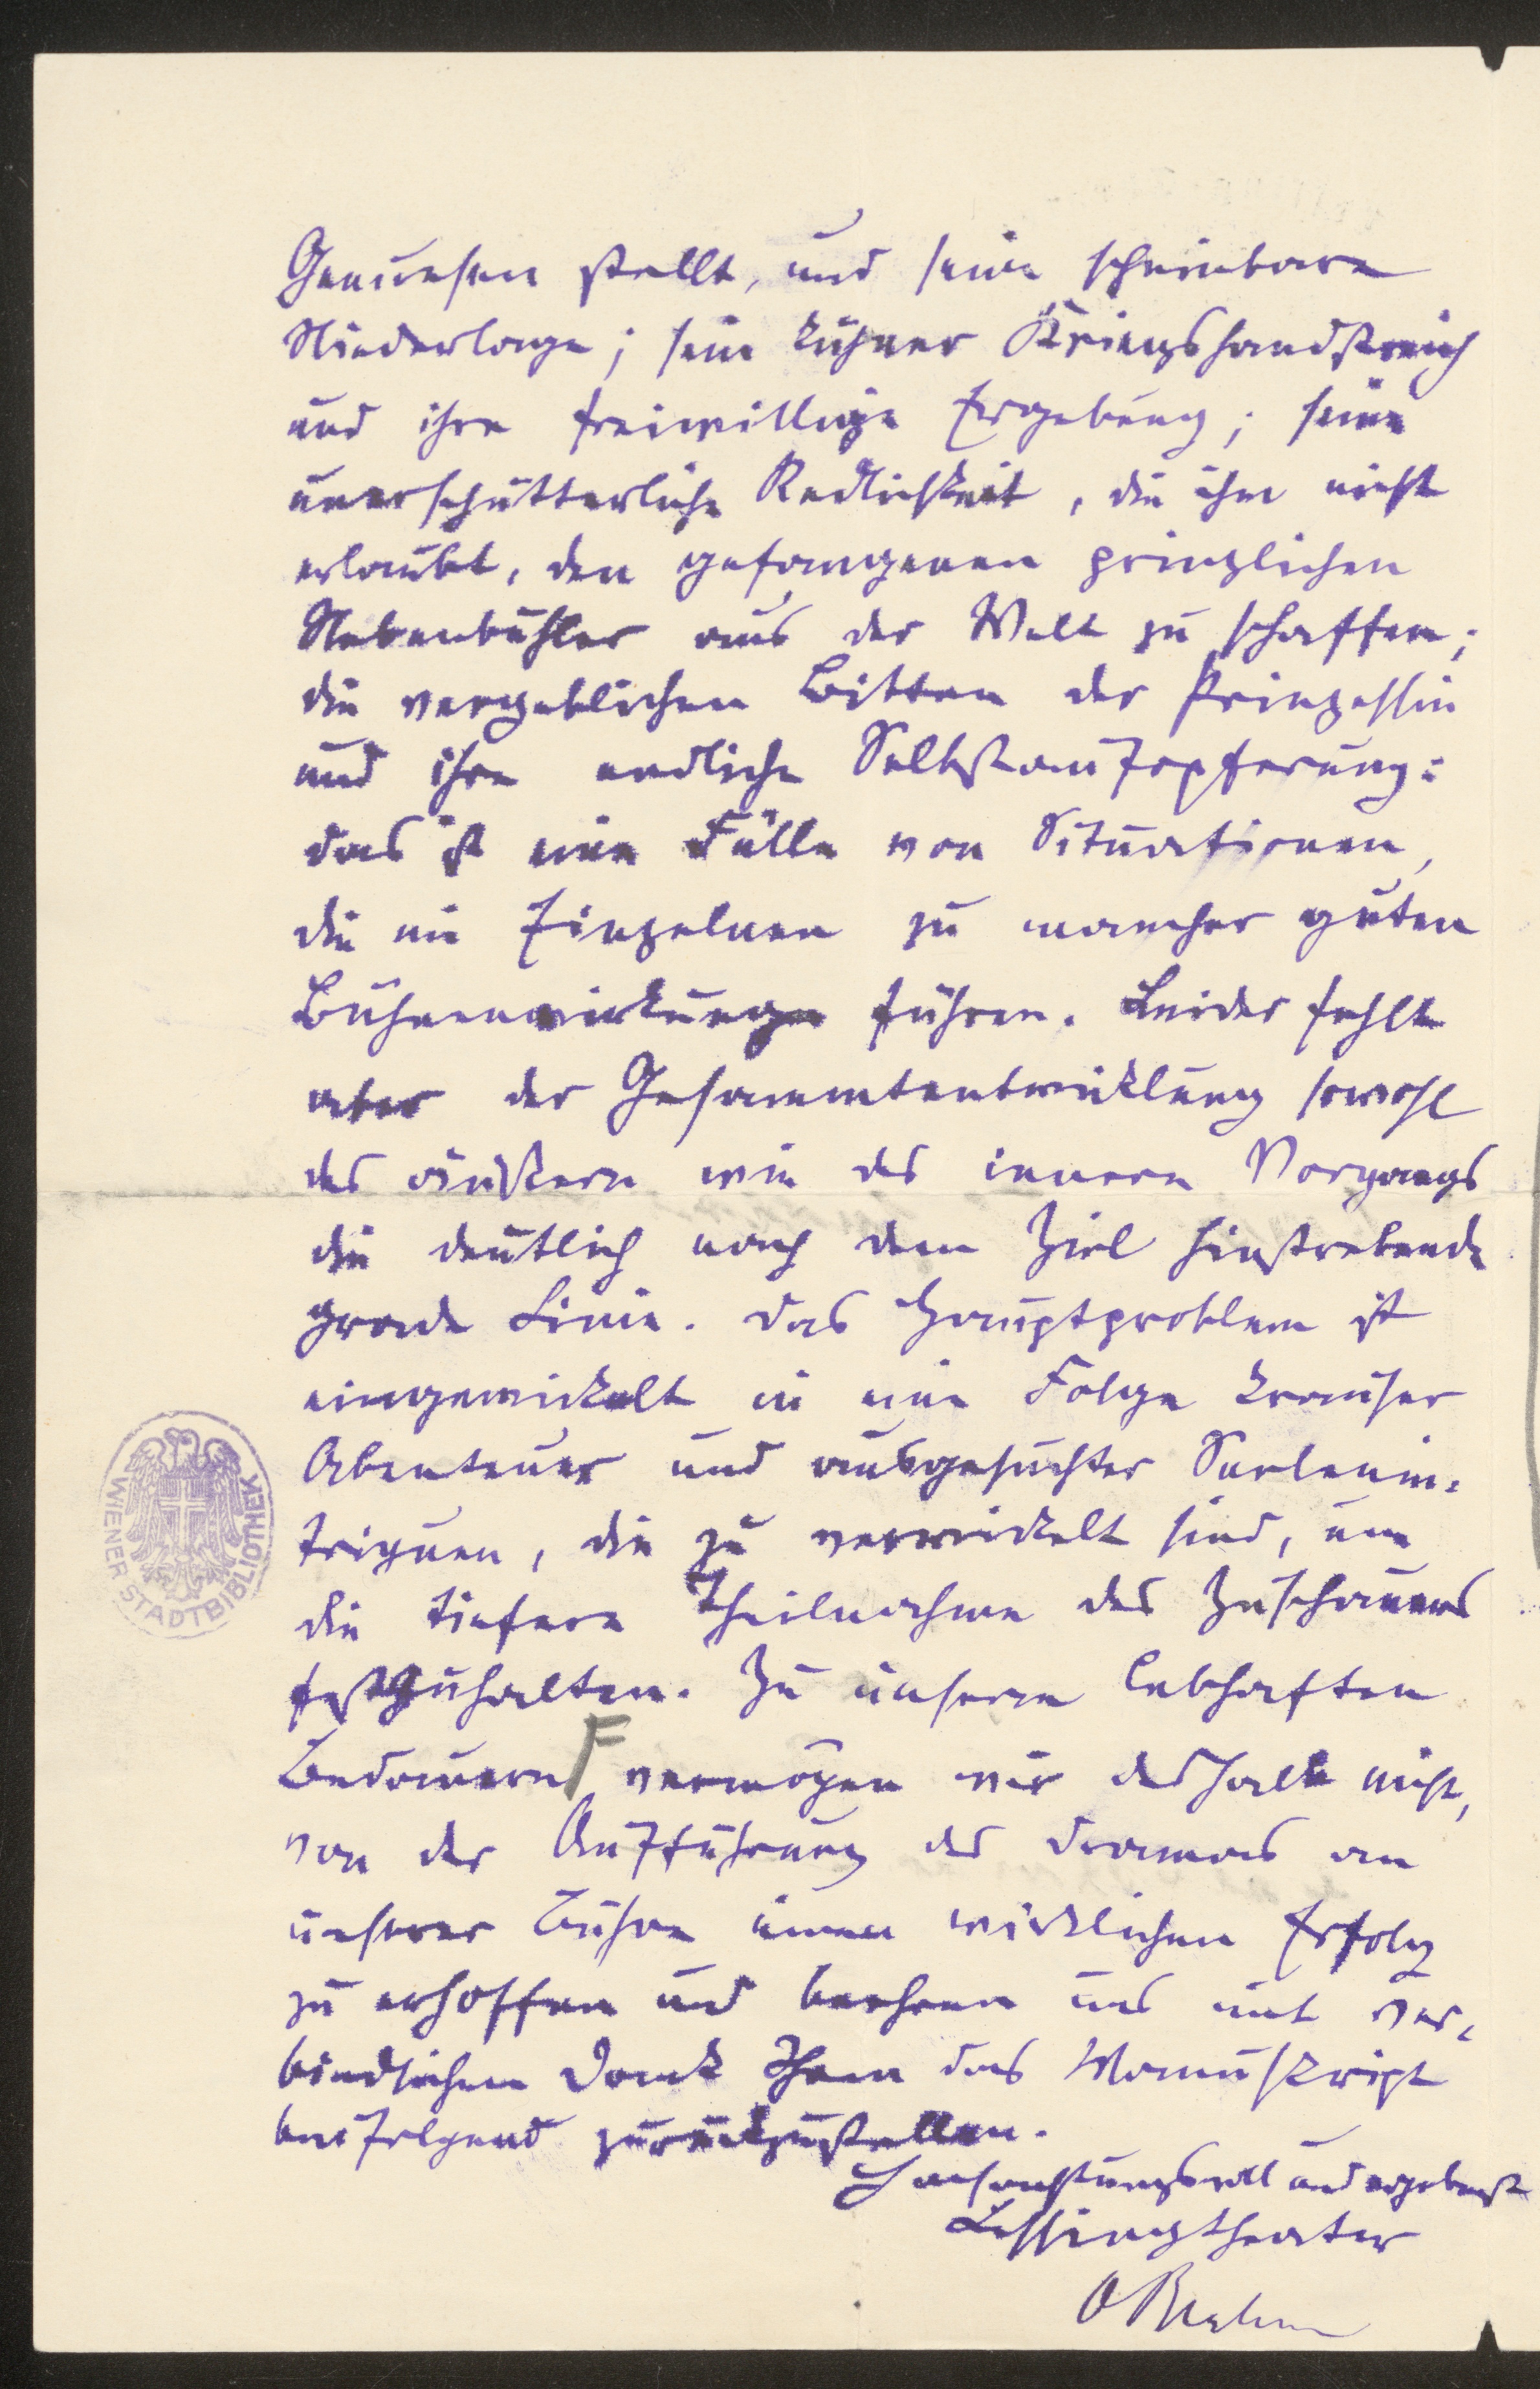 Genuesen stellt, und seine scheinbare
Niederlage; sein kühner Kriegshandstreich
und ihre freiwillige Ergebung; seine
unerschütterliche Redlichkeit, die ihm nicht
erlaubt, den gefangenen prinzlichen
Nebenbuhler aus der Welt zu schaffen;
die vergeblichen Bitten der Prinzessin
und ihre endliche Selbstaufopferung:
das ist eine Fülle von Situationen,
die im Einzelnen zu mancher guten
Bühnenwirkung führen. Leider fehlt
aber der Gesammtentwicklung sowohl
des äußern wie des innern Vorgangs
die deutlich nach dem Ziel hinstrebende
grade Linie. Das Hauptproblem ist
eingewickelt in eine Folge krauser
Abenteuer und ausgesuchter Seelenin-
triguen, die zu verwickelt sind, um
die tiefere Theilnahme des Zuschauers
festzuhalten. Zu unserem lebhaften
Bedauern vermögen wir deshalb nicht,
von der Aufführung des Dramas an
unserer Bühne einen wirklichen Erfolg
zu erhoffen und beehren uns mit ver-
bindlichem Dank Ihnen das Manuskript
beifolgend zurückzustellen.
Hochachtungsvoll und ergebenst
Lessingtheater
O Brahm
WIENER STADTBIBLIOTHEK